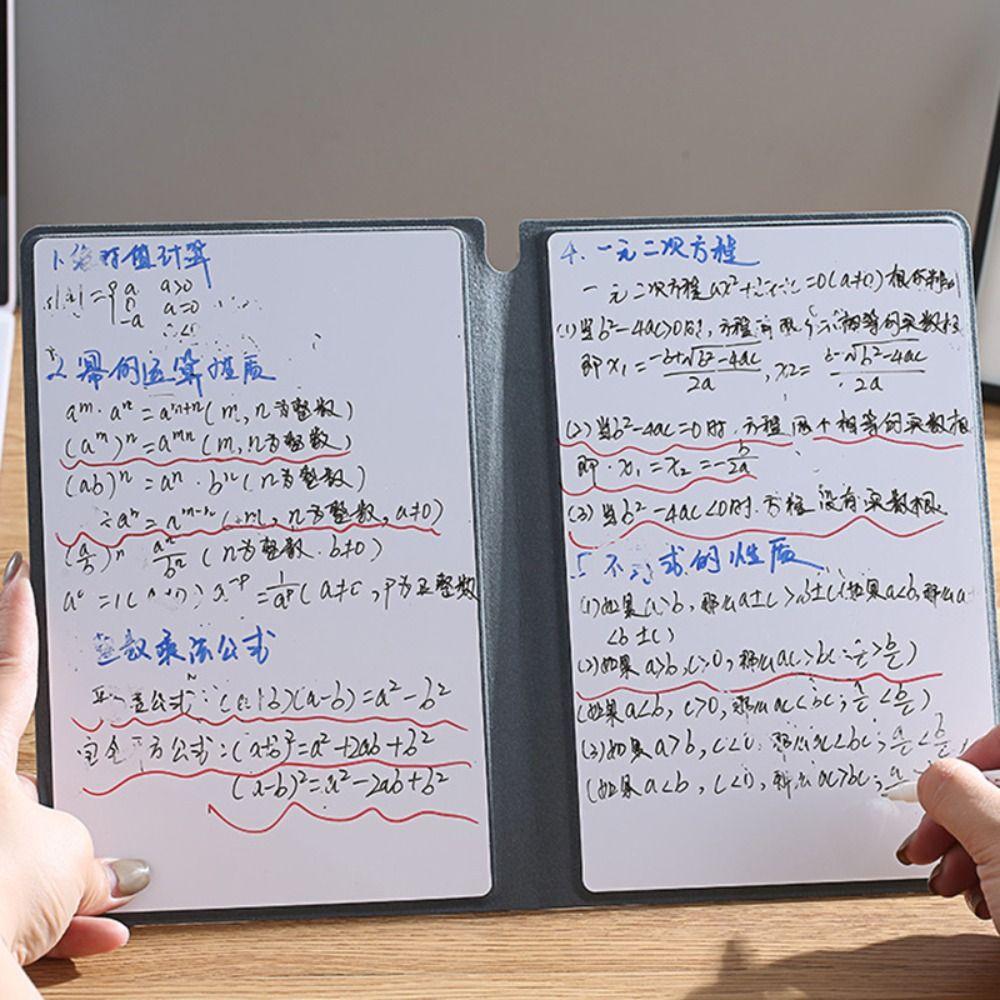 1. 绝对值计算
= { a a>0
0 a=0
-a <0
2 幂的运算性质
aᵐ·aⁿ=aᵐ⁺ⁿ(m,n为整数)
(aᵐ)ⁿ=aᵐⁿ(m,n为整数)
(ab)ⁿ=aⁿ·bⁿ(n为整数)
÷aⁿ=aᵐ⁻ⁿ(m,n为整数,a≠0)
(a/b)ⁿ aⁿ/bⁿ (n为整数·b≠0)
a⁻ᵖ=1/aᵖ(a≠ ,p为正整数
整数乘法公式
平 差公式:( b)(a-b)=a²-b²
完全平方公式:(a+b)²=a²+2ab+b²
(a-b)²=a²-2ab+b²
4. 一元二次方程
一元二次方程ax²+ =0(a≠0)根
(1)当b²-4ac>0时,方程有两个不相等的实数根
即x₁=(-b+√b²-4ac)/2a , x2= (b-√b²-4ac)/2a
(2)当b²-4ac=0时,方程两个相等的实数根
即·x₁=x₂=-b/2a
(3)当b²-4ac<0时.方程没有实数根
5 不 式的性质
(1)如果a>b,那么a±c>b±c(如果a<b,那么a
<b±c)
(2)如果a>b,c>0,那么ac>bc; >b/c)
(如果a<b,c>0,那么ac<bc; a/c<b/c)
(3)如果a>b,c<0.那么ac<bc;a/c<b/c,
(如果a<b,c<0,那么ac>bc;